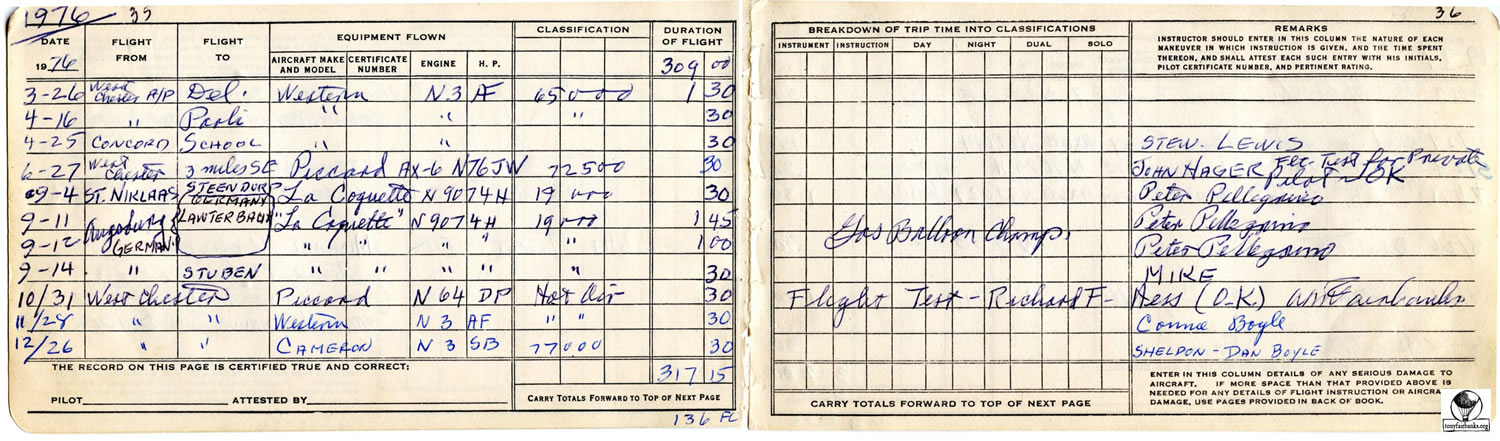 1976 35
DATE FLIGHT FROM FLIGHT TO EQUIPMENT FLOWN CLASSIFICATION DURATION OF FLIGHT
1976 AIRCRAFT MAKE AND MODEL CERTIFICATE NUMBER ENGINE H. P. 309 00
3-26 West Chester A/P Del. Western N3 AF 65000 1 30
4-16 " Paoli " " " 30
4-25 CONCORD SCHOOL " " 30
6-27 West Chester 3 miles SE Piccard AX-6 N76JW 72500 30
9-4 ST. NIKLAAS STEENDURP La Coquette N9074H 19000 30
9-11 Augsburg GERMANY LAWTERBACH "La Coquette" N9074H 19000 1 45
9-12 " " " " " 1 00
9-14 " STUBEN " " " " " 30
10/31 West Chester Piccard N 64 DP Hot Air 30
11/28 " " Western N 3 AF " " 30
12/26 " " CAMERON N 3 SB 77000 30
THE RECORD ON THIS PAGE IS CERTIFIED TRUE AND CORRECT: 317 15
PILOT ATTESTED BY CARRY TOTALS FORWARD TO TOP OF NEXT PAGE
136 FL
36
BREAKDOWN OF TRIP TIME INTO CLASSIFICATIONS
INSTRUMENT INSTRUCTION DAY NIGHT DUAL SOLO
REMARKS
INSTRUCTOR SHOULD ENTER IN THIS COLUMN THE NATURE OF EACH
MANEUVER IN WHICH INSTRUCTION IS GIVEN, AND THE TIME SPENT
THEREON, AND SHALL ATTEST EACH SUCH ENTRY WITH HIS INITIALS,
PILOT CERTIFICATE NUMBER, AND PERTINENT RATING.
STEW. LEWIS
JOHN HAGER Flt. Test for Private
Pilot - OK
Peter Pellegrino
Gas Balloon Champ. Peter Pellegrino
Peter Pellegrino
MIKE
Flight Test - Richard F- Ness (O.K.) Fairbanks
Connie Boyle
SHELDON - DAN BOYLE
CARRY TOTALS FORWARD TO TOP OF NEXT PAGE
ENTER IN THIS COLUMN DETAILS OF ANY SERIOUS DAMAGE TO
AIRCRAFT. IF MORE SPACE THAN THAT PROVIDED ABOVE IS
NEEDED FOR ANY DETAILS OF FLIGHT INSTRUCTION OR AIRCRA
DAMAGE, USE PAGES PROVIDED IN BACK OF BOOK.
tonyfairbanks.org